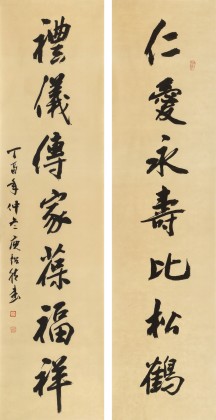 仁愛永壽比松鶴
禮儀傳家葆福祥
丁酉年仲冬